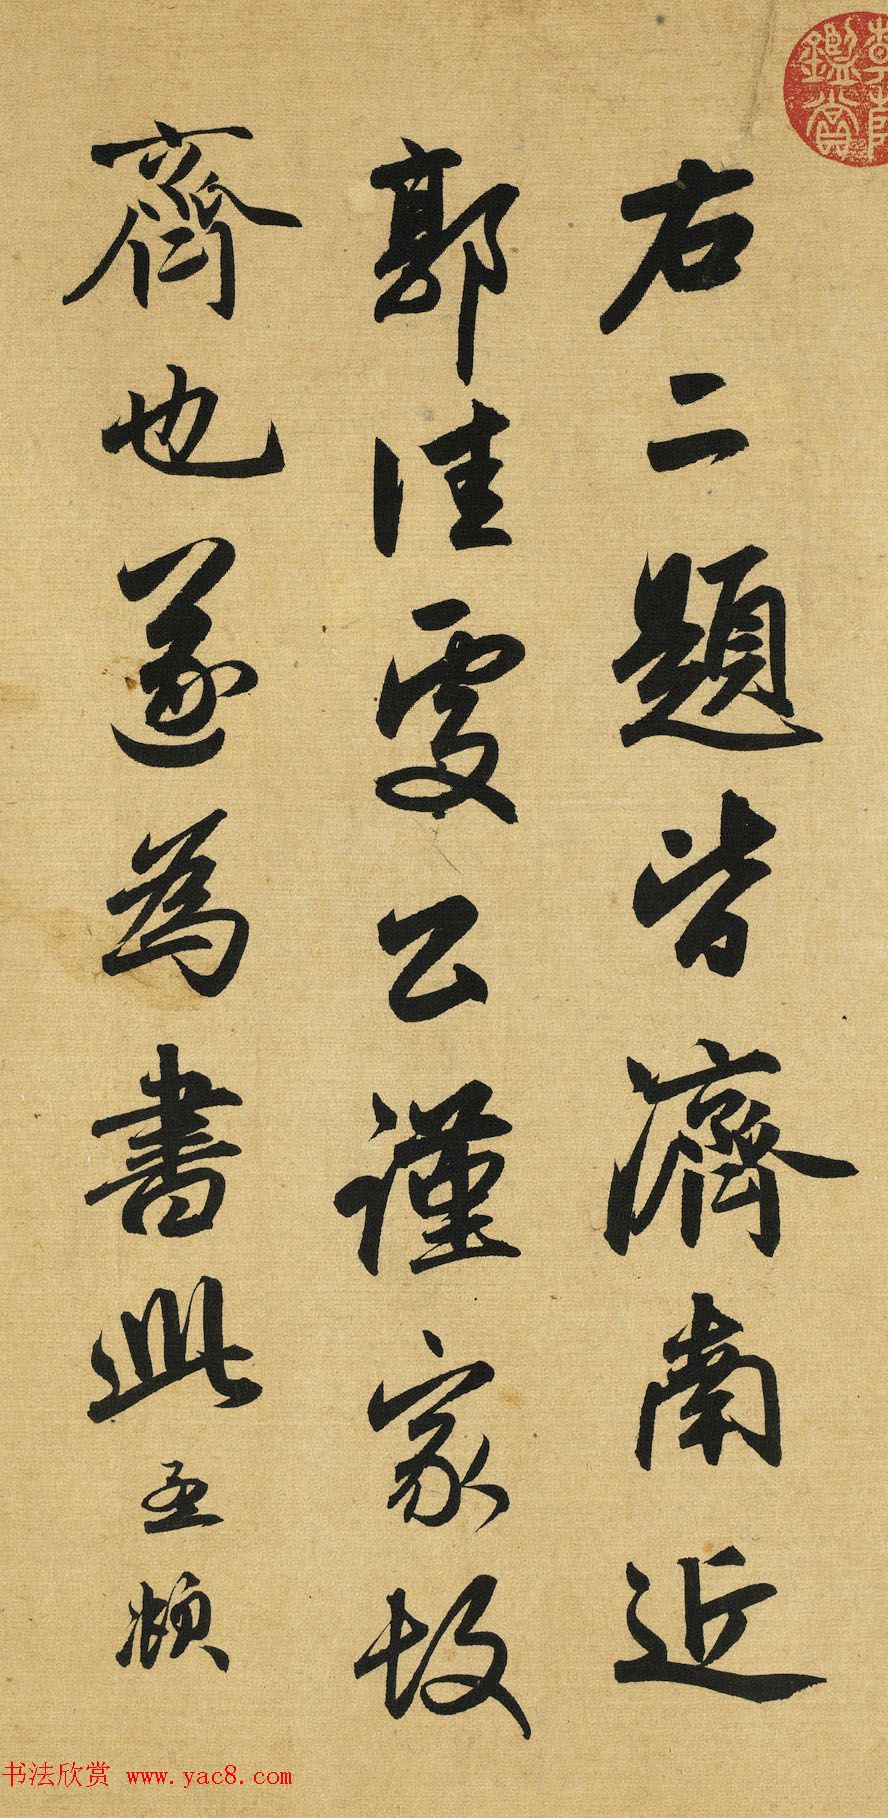 右二題皆濟南近
郭佳處公謹家故
齊也遂為書此孟頫
鑑賞
书法欣赏 www.yac8.com